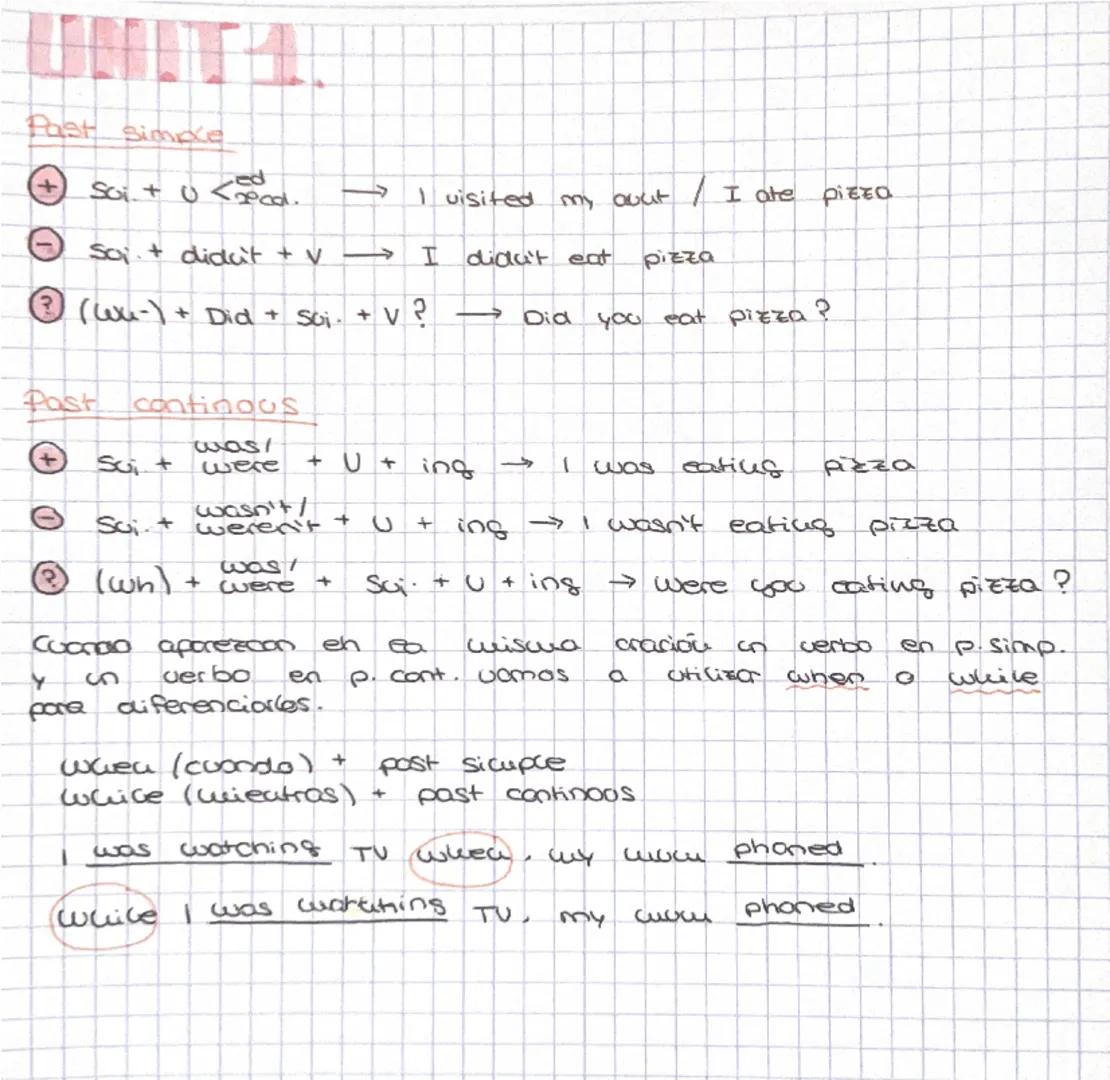 UNIT 1.
Past simple
+ Suj. + V < ed / 2ªcol. → I visited my aunt / I ate pizza
- Suj. + didn't + V → I didn't eat pizza
? (Wh-) + Did + Suj. + V? → Did you eat pizza?
Past continous
+ Suj. + was/were + V + ing → I was eating pizza
- Suj. + wasn't/weren't + V + ing → I wasn't eating pizza
? (wh) + was/were + Suj. + V + ing → Were you eating pizza?
Cuando aparezcan en la misma oración un verbo en p. simp.
y un verbo en p. cont. vamos a utilizar when o while
para diferenciarles.
When (cuando) + past simple
While (mientras) + past continoos
I was watching TV when, my mum phoned.
While I was watching TV, my mum phoned.